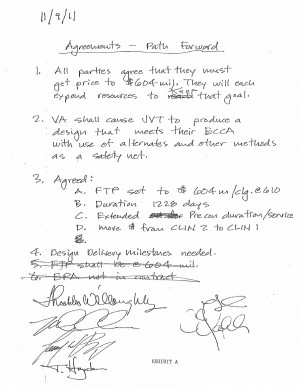 11/9/11
Agreements - Path Forward
1. All parties agree that they must
get price to $604 mil. They will each
expend resources to that goal.
2. VA shall cause JVT to produce a
design that meets their ECCA
with use of alternates and other methods
as a safety net.
3. Agreed:
A. FTP set to $604m/clg. @610
B. Duration 1228 days
C. Extended Precon duration/service
D. more $ from CLIN 2 to CLIN 1
4. Design Delivery milestones needed.
5. FTP shall be @ 604 mil.
6. EPA not in contract
EXHIBIT A